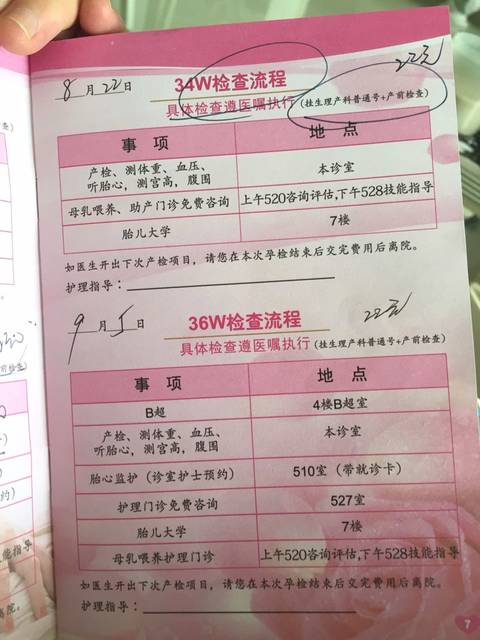 22元
8月22日
34W检查流程
具体检查遵医嘱执行(挂生理产科普通号+产前检查)
事项 地点
产检、测体重、血压、 本诊室
听胎心,测宫高,腹围
母乳喂养、助产门诊免费咨询 上午520咨询评估,下午528技能指导
胎儿大学 7楼
如医生开出下次产检项目,请您在本次孕检结束后交完费用后离院。
护理指导:
9月5日
36W检查流程
22元
具体检查遵医嘱执行(挂生理产科普通号+产前检查)
事项 地点
B超 4楼B超室
产检、测体重、血压、 本诊室
听胎心,测宫高,腹围
胎心监护(诊室护士预约) 510室(带就诊卡)
护理门诊免费咨询 527室
胎儿大学 7楼
母乳喂养护理门诊 上午520咨询评估,下午528技能指导
如医生开出下次产检项目,请您在本次孕检结束后交完费用后离院。
护理指导:
7
查)
。
前检查)
约)
能指导
离院。